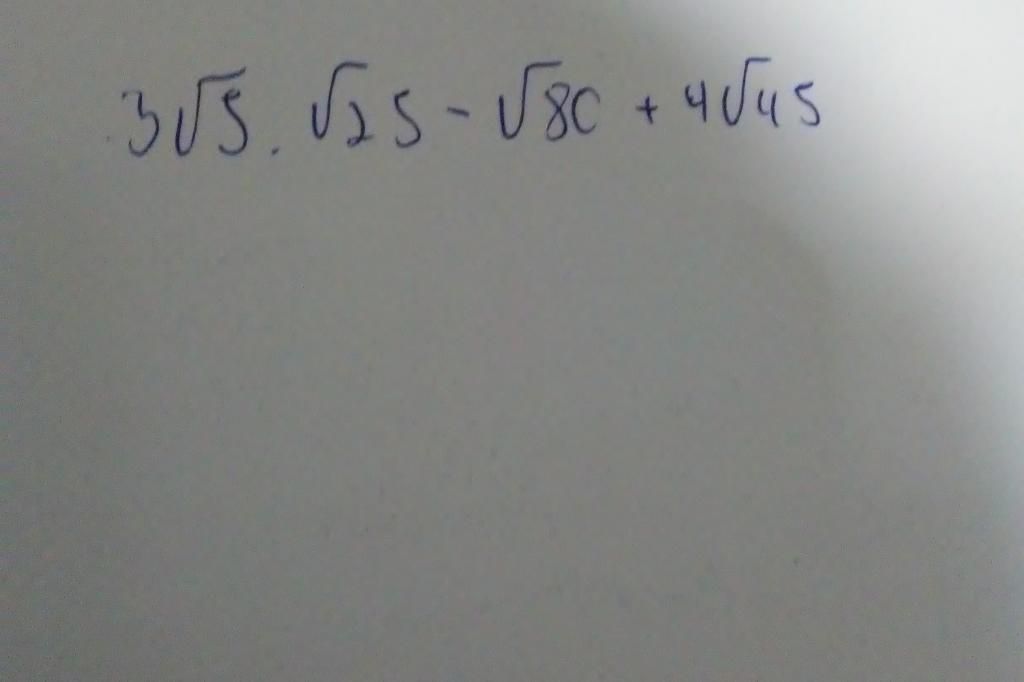 3√5 . √25 - √80 + 4√45